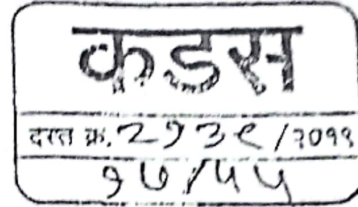 कडस
दस्त क्र. २१३९/२०११
१७/५५